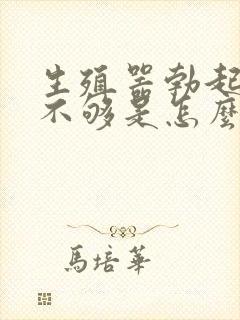 生殖器勃起
不够是怎麼
馬培華